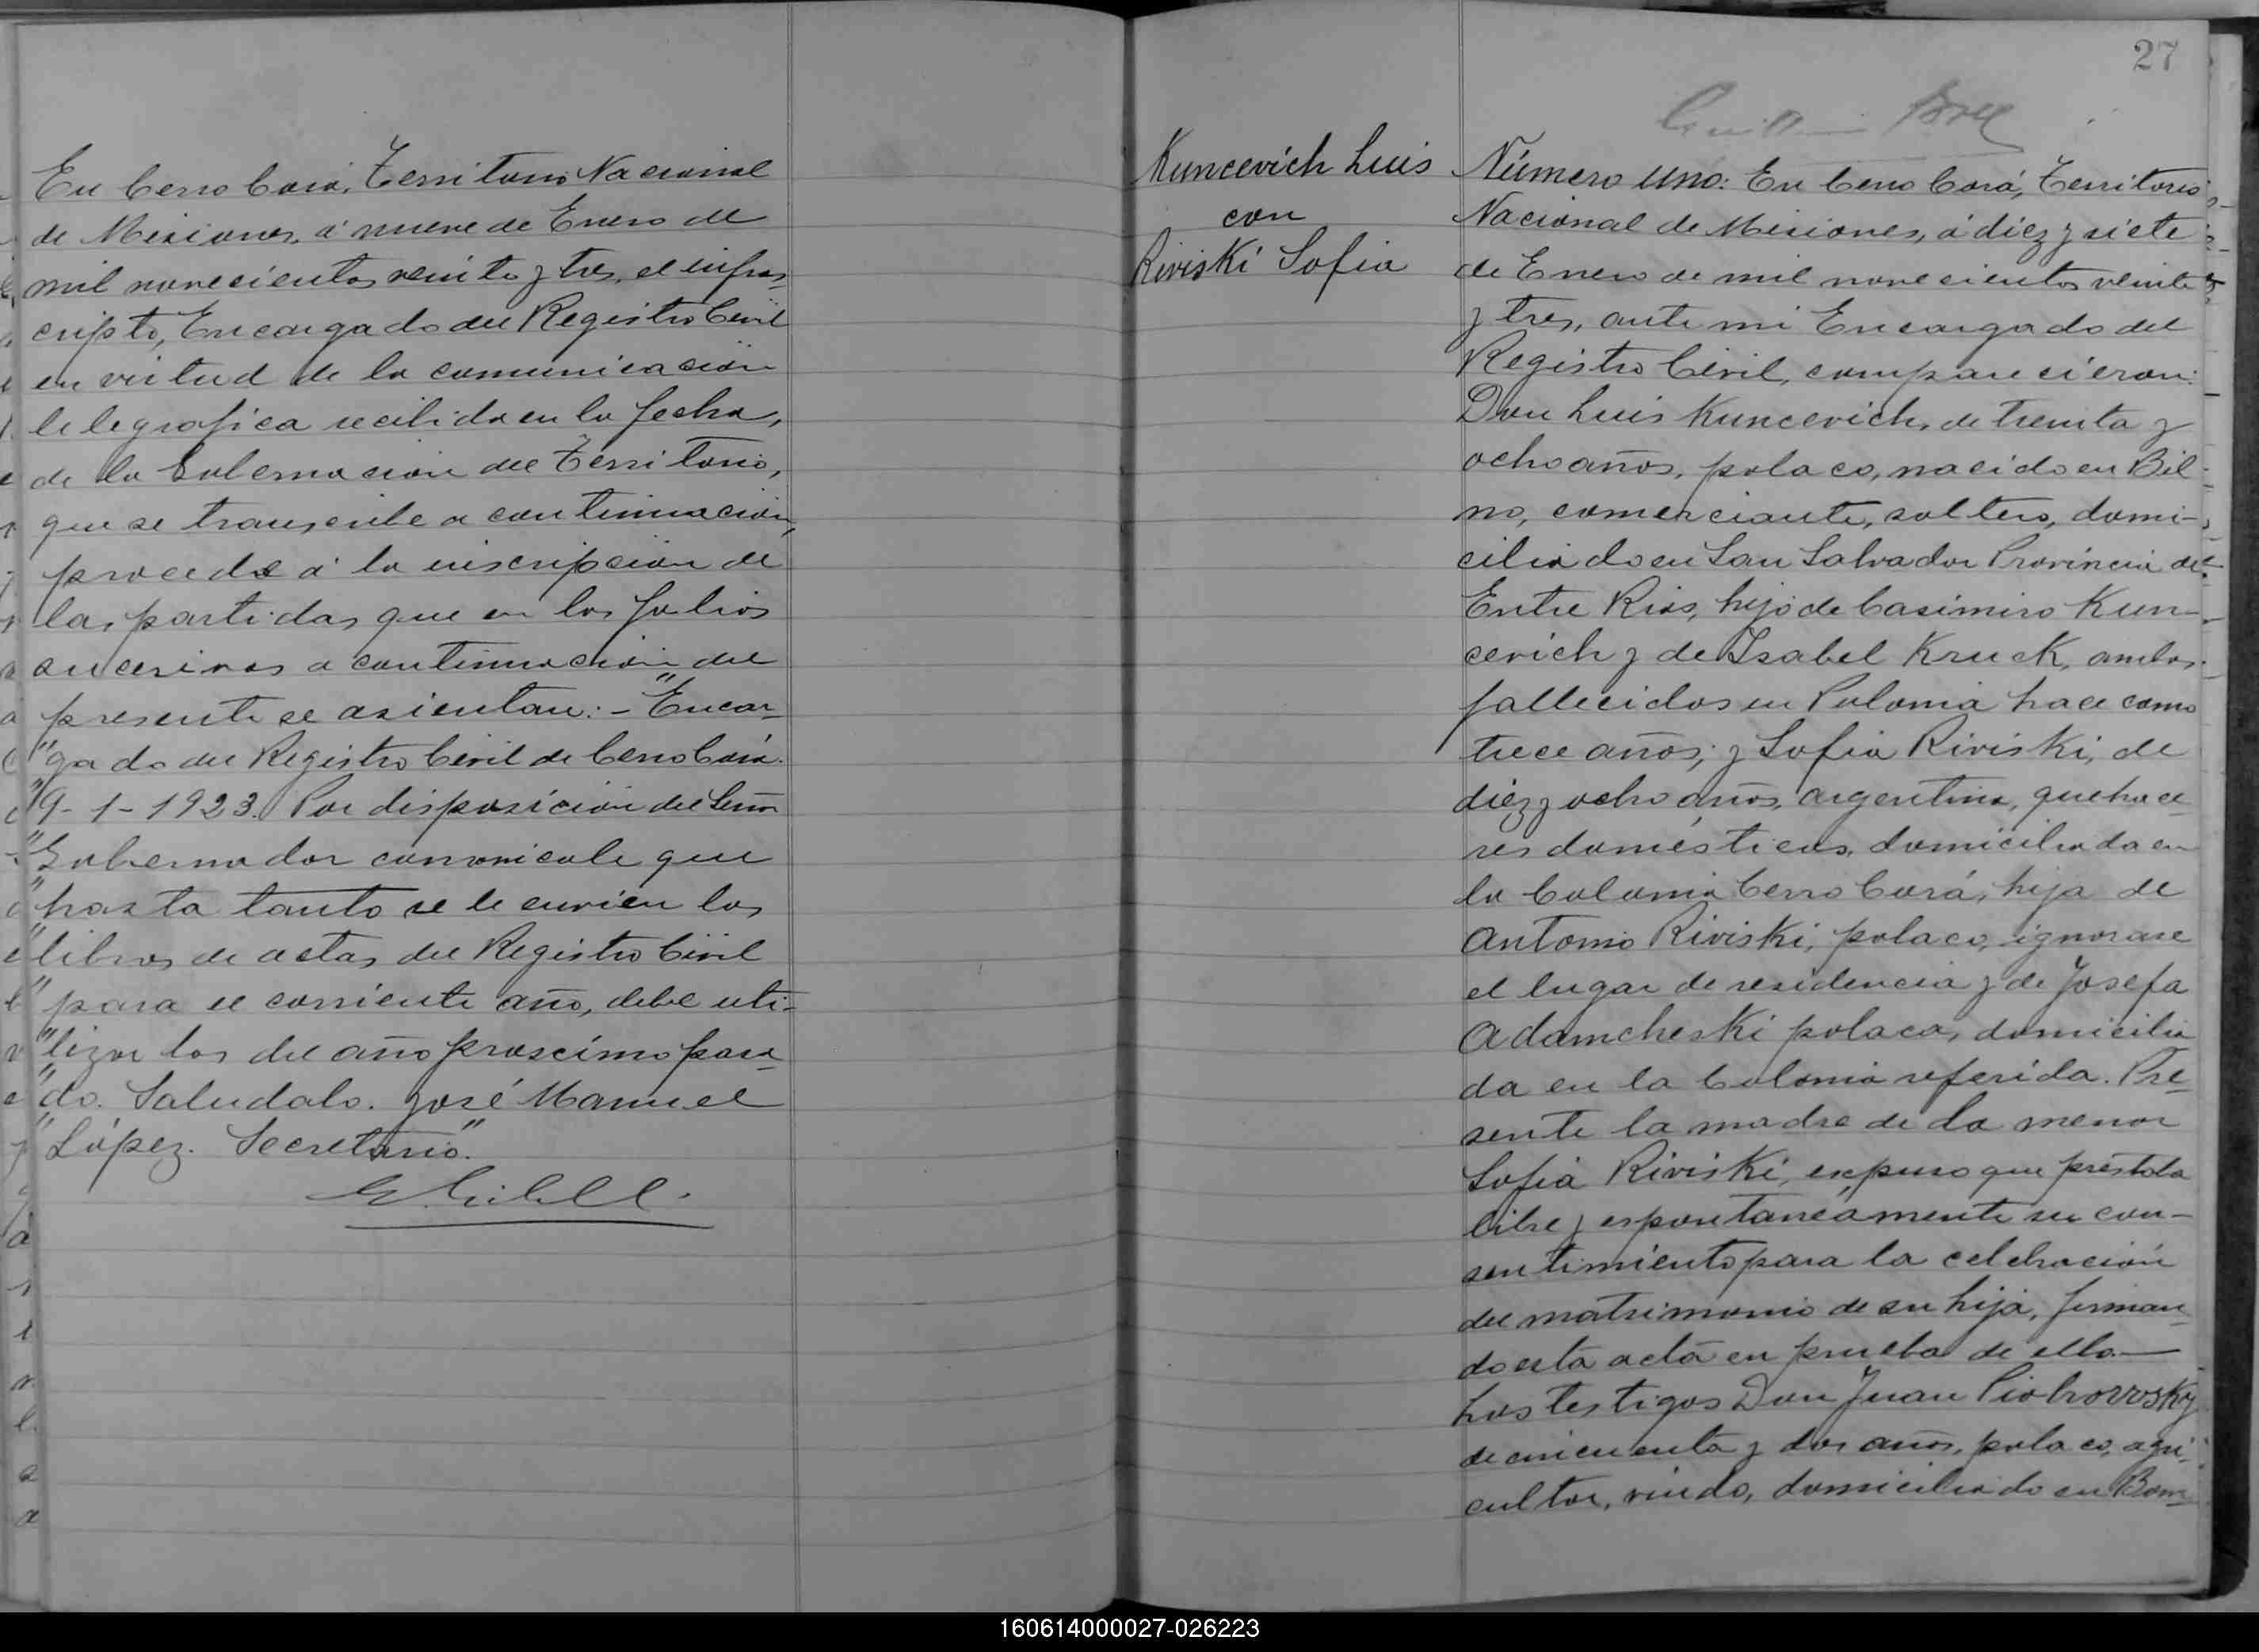 En Cerro Corá, Territorio Nacional
de Misiones, á nueve de Enero de
mil novecientos veinte y tres, el infras-
cripto, Encargado del Registro Civil
en virtud de la comunicación
telegrafica recibida en la fecha,
de la Gobernacion del Territorio,
que se transcribe a continuación,
procede á la inscripción de
las partidas que en los folios
sucesivos a continuación del
presente se asientan: - "Encar-
"gado del Registro Civil de Cerro Corá.
"9-1-1923. Por disposición del Señor
"Gobernador comunicole que
"hasta tanto se le envíen los
"libros de actas del Registro Civil
"para el corriente año, debe uti-
"lizar los del año proscímo pasa-
"do. Saludalo. José Manuel
"López. Secretario."
27
Kuncevich Luis
con
Riviski Sofia
Número uno: En Cerro Corá, Territorio
Nacional de Misiones, á diez y siete
de Enero de mil novecientos veinte
y tres, ante mi Encargado del
Registro Civil, comparecieron:
Don Luis Kuncevich, de treinta y
ocho años, polaco, nacido en Bil-
no, comerciante, soltero, domi-
ciliado en San Salvador Provincia de
Entre Rios, hijo de Casimiro Kun-
cevich y de Isabel Kruck, ambos
fallecidos en Polonia hace como
trece años; y Sofia Riviski, de
diez y ocho años, argentina, quehace-
res domésticos, domiciliada en
la Colonia Cerro Corá, hija de
Antonio Riviski, polaco, ignorase
el lugar de residencia y de Josefa
Adamcheski polaca, domicilia
da en la Colonia referida. Pre-
sente la madre de la menor
Sofia Riviski, expuso que prestaba
libre y espontaneamente su con-
sentimiento para la celebración
del matrimonio de su hija, firman-
do esta acta en prueba de ello.—
Los testigos Don Juan Piotrowosky
de cincuenta y dos años, polaco, agri-
cultor, viudo, domiciliado en Bom-
160614000027-026223